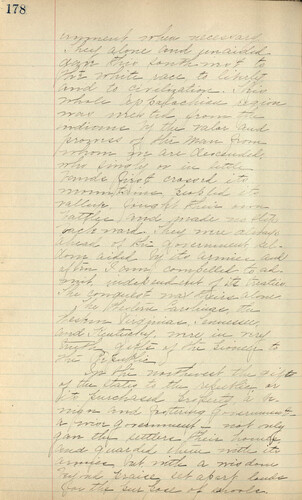 178
ernment when necessary.
They alone and unaided
won this south-west to
the white race to liberty
and to civilization. This
whole Appalachian region
was wrested from the
indians by the valor and
prowess of the man from
whom you are descended,
who singly or in little
bands first crossed its
mountains peopled its
valleys fought their own
battles and made no step
backward. They were always
ahead of the government sel-
dom aided by its armies and
often I am compelled to ad-
mit independent of its treaties.
The conquest was theirs alone.
The Western Carolinas, the
Western Virginias, Tennessee,
and Kentucky were in very
truth gifts of the to
the Republic.
In the northwest the gift
of the states to the republic or
its purchased property a be-
nign and fostering government
a government not only
gave the settlers their homes
and guarded them with its
armies but with a wisdom
beyond praise set apart lands
for the purpose of schools